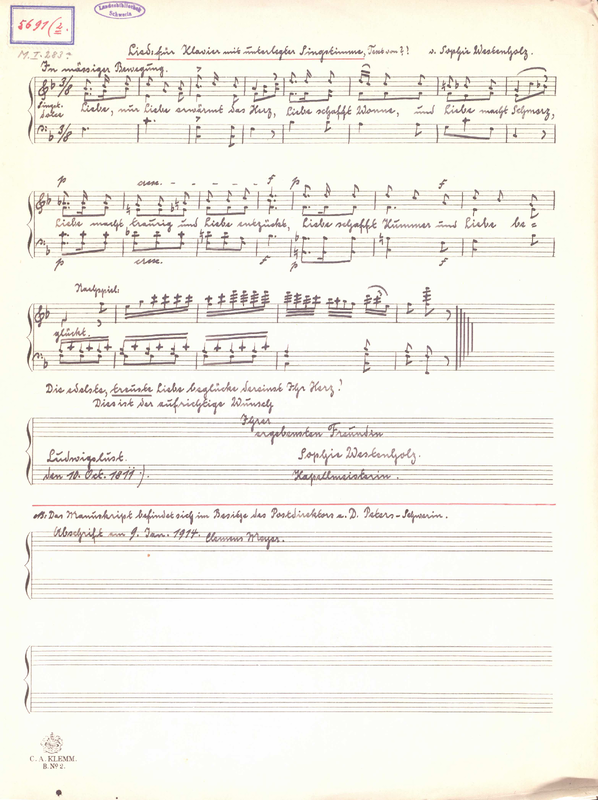 5691(2/II.
Landesbibliothek
Schwerin
M. I. 283a
Lied: für Klavier mit unterlegter Singstimme, Text von ?? v. Sophie Westenholz.
In mässiger Bewegung.
Singst.
dolce
Liebe, nur Liebe erwärmt das Herz, Liebe schafft Wonne, und Liebe macht Schmerz,
p cresc. f p f
Liebe macht traurig und Liebe entzückt, Liebe schafft Kummer und Liebe be=
p cresc. f p f
Nachspiel:
glückt.
Die edelste, treuste Liebe beglücke dereinst Ihr Herz!
Dies ist der aufrichtige Wunsch
Ihrer
ergebensten Freundin
Ludwigslust. Sophie Westenholz.
den 10. Oct. 1811.). Kapellmeisterin.
NB. Das Manuskript befindet sich im Besitze des Postdirektors a. D. Peters-Schwerin.
Abschrift am 9. Jan. 1914. Clemens Meyer.
C. A. KLEMM.
B. No 2.